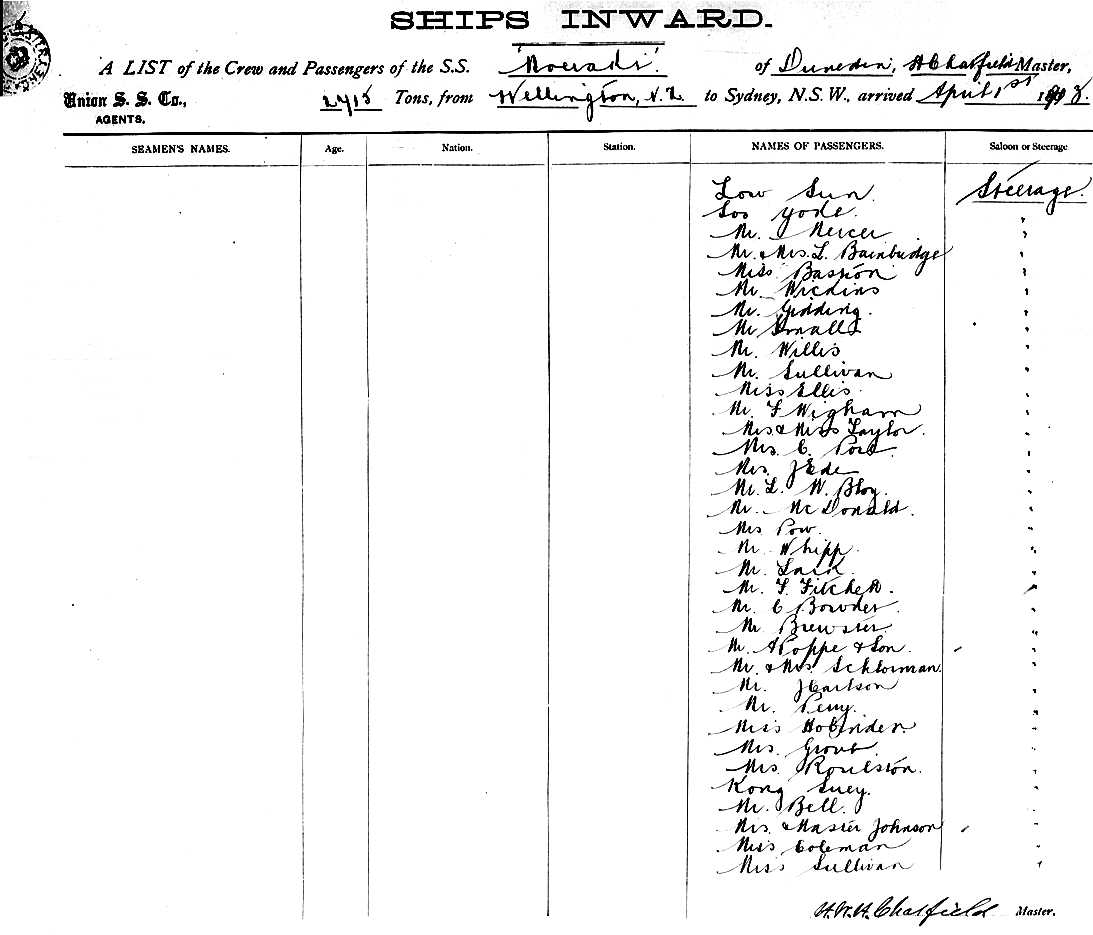 SHIPS INWARD.
A LIST of the Crew and Passengers of the S.S. of Dunedin, Chatfield Master,
Union S. S. Co., 2415 Tons, from Wellington, N.Z. to Sydney, N.S.W., arrived April 1st
AGENTS.
SEAMEN'S NAMES. Age. Nation. Station. NAMES OF PASSENGERS. Saloon or Steerage
Low Sun Steerage.
Soo yode. "
Mr. Mercer "
Mr. & Mrs. L. Bainbridge "
Miss Bastion "
Mr. Wickins "
Mr. Gidding. "
Mr Small "
Mr. Willis "
Mr. Sullivan "
Miss Ellis. "
Mr. F Wigham "
Mrs & Miss Taylor. "
Mrs. C. "
Mrs. J Ede "
Mr. L. W. Bloy. "
Mr. McDonald. "
Mrs Pow. "
Mr. Whipp. "
Mr. "
Mr. F. Fitchett. "
Mr. C Bowder. "
Mr Brewster. "
Mr. A Poppe & Son. "
Mr. & Mrs. "
Mr. J Carlson "
Mr. Perry. "
Miss "
Mrs. Grout "
Mrs. Roulston. "
Kong Suey. "
Mr. Bell. "
Mrs. & Master Johnson "
Miss Coleman "
Miss Sullivan "
Chatfield Master.